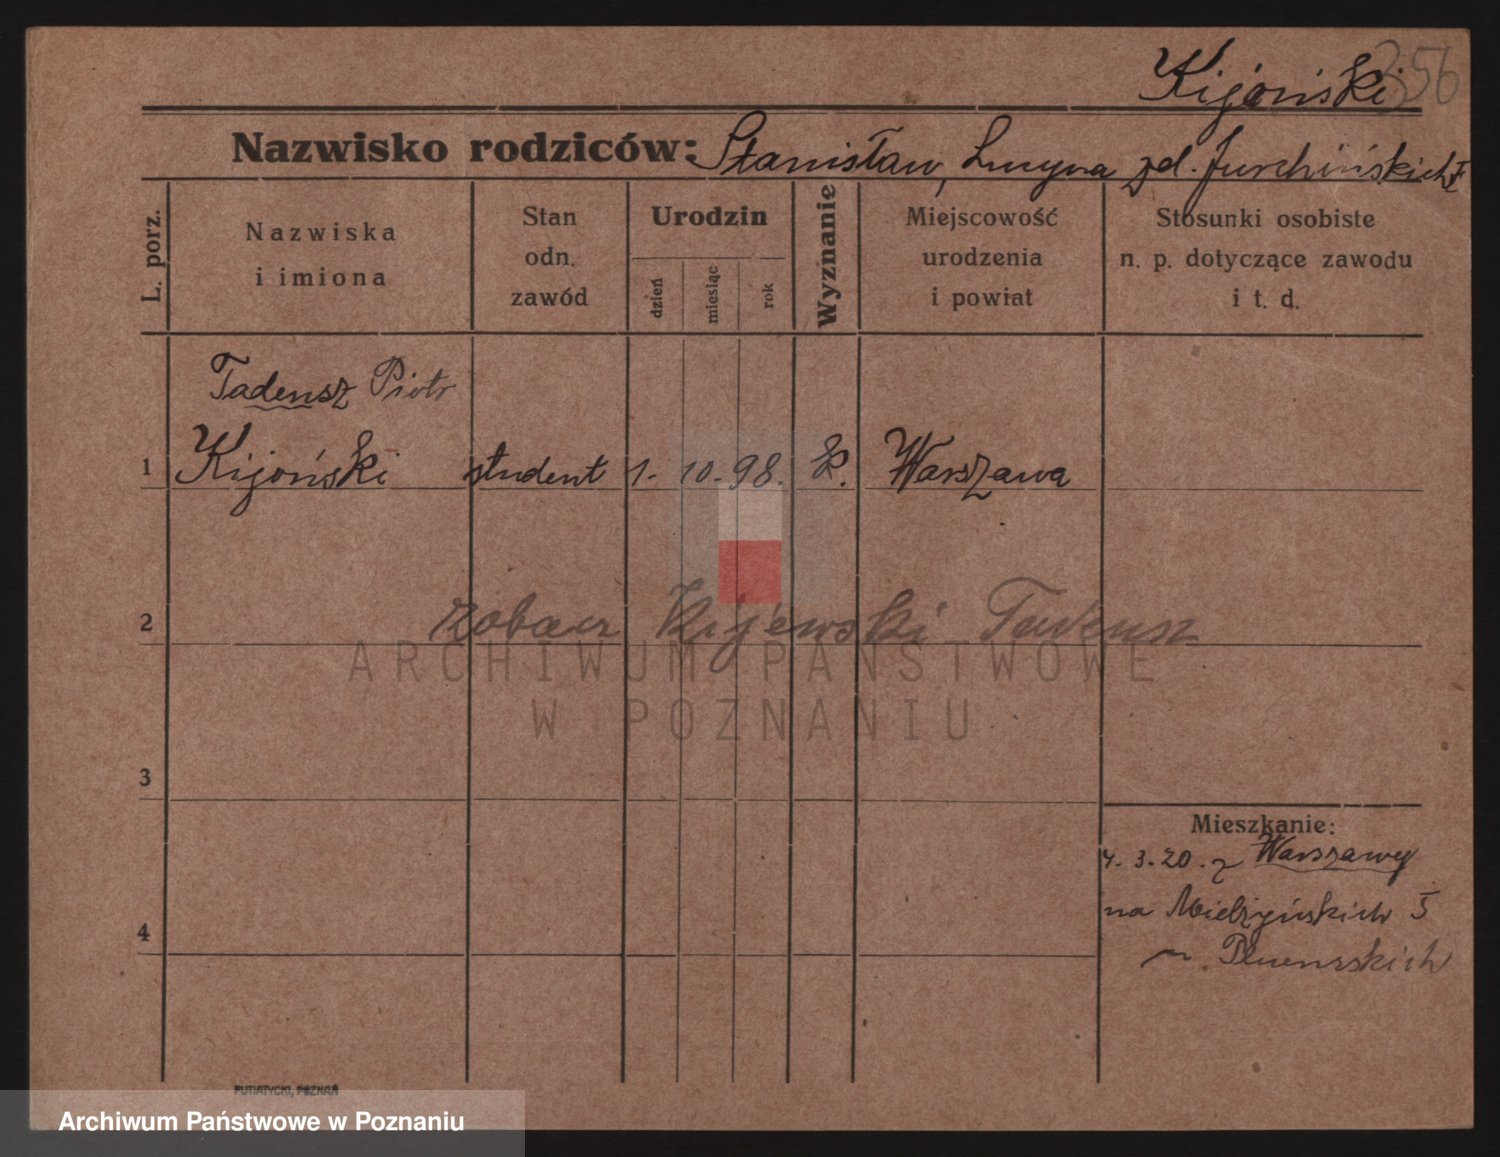 356
Kijoński
Nazwisko rodziców: Stanisław, Lucyna zd. Jurchińskich
L. porz.
Nazwiska i imiona
Stan odn. zawód
Urodzin
dzień
miesiąc
rok
Wyznanie
Miejscowość urodzenia i powiat
Stosunki osobiste n. p. dotyczące zawodu i t. d.
Tadeusz Piotr
1 Kijoński student 1. 10. 98. k. Warszawa
2 zobacz Kijewski Tadeusz
ARCHIWUM PAŃSTWOWE
W POZNANIU
3
Mieszkanie:
4. 3. 20. z Warszawy
na Mielżyńskich 5
4
u
PUTIATYCKI, POZNAŃ
Archiwum Państwowe w Poznaniu